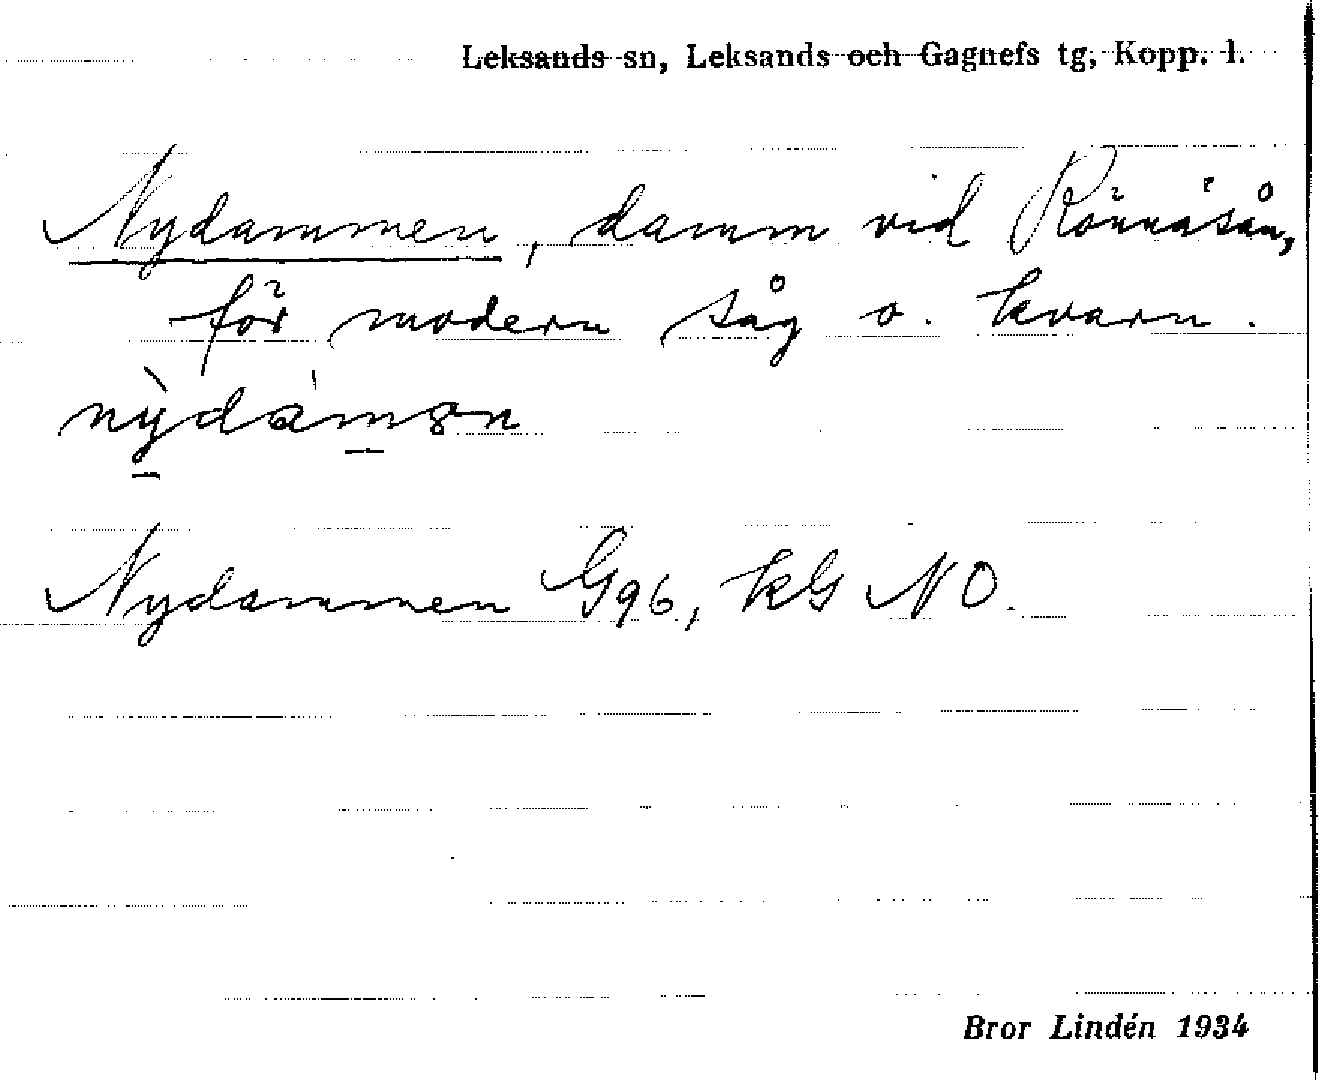 Leksands sn, Leksands och Gagnefs tg, Kopp. l.
Nydammen, damm vid Rönnåsån,
för modern såg o. kvarn.
Nydammen G96, kG NO.
Bror Lindén 1934